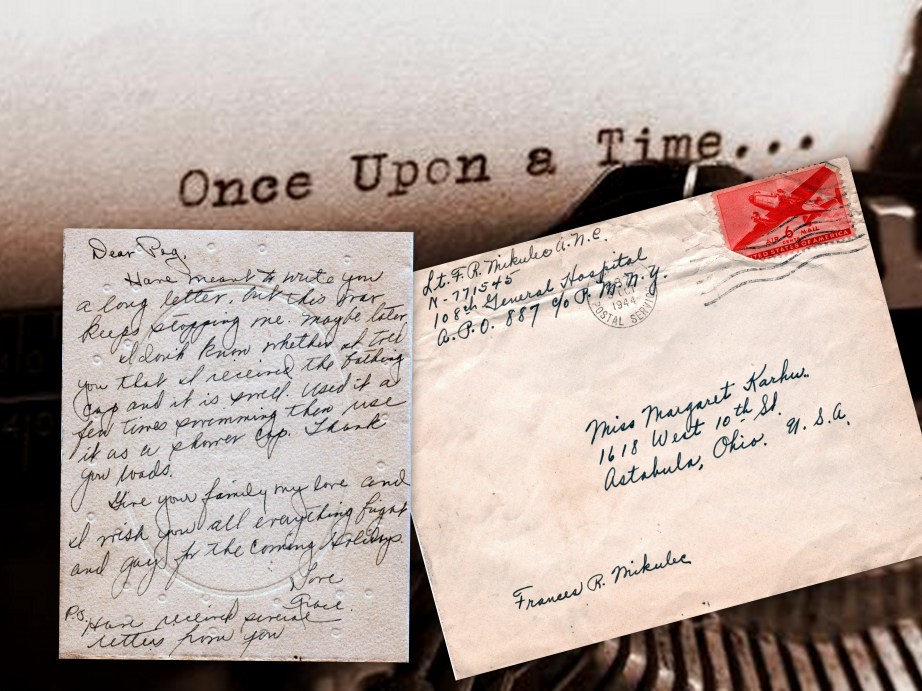 Once Upon a Time...
Dear Peg,
Have meant to write you
a long letter, but this war
keeps stopping me. Maybe later
I don't know whether I told
you that I received the bathing
cap and it is swell. Used it a
few times swimming then use
it as a shower cap. Thank
you loads.
Give your family my love and
I wish you all everything bright
and gay for the coming Holidays.
Love
Grace.
P.S. Have received several
letters from you
Lt. F. R. Mikulec A.N.C.
N-771545
108th General Hospital
A.P.O. 887 c/o P.M. N.Y.
1944
POSTAL SERV
AIR 6 MAIL
UNITED STATES OF AMERICA
Miss Margaret Karhu.
1618 West 10th St.
Astabula, Ohio. U.S.A.
Frances R. Mikulec